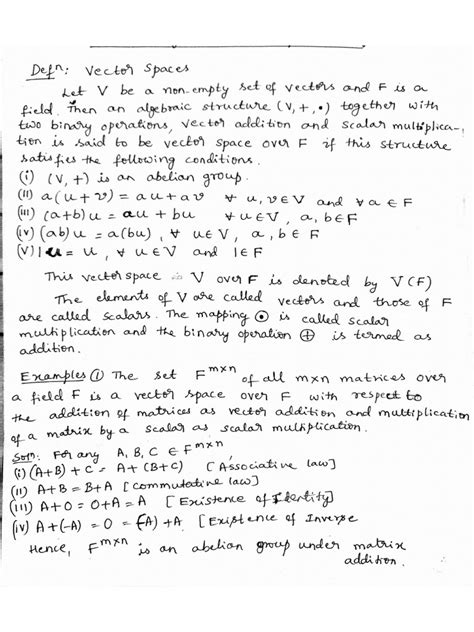 Defn: Vector Spaces
Let V be a non-empty set of vectors and F is a
field. Then an algebraic structure (V, +, •) together with
two binary operations, vector addition and scalar multiplica-
tion is said to be vector space over F if this structure
satisfies the following conditions.
(i) (V, +) is an abelian group.
(ii) a(u+v) = au+av ∀ u,v∈V and ∀ a∈F
(iii) (a+b)u = au + bu ∀ u∈V, a,b∈F
(iv) (ab)u = a(bu), ∀ u∈V, a, b∈F
(v) 1u = u, ∀ u∈V and 1∈F
This vector space is V over F is denoted by V(F)
The elements of V are called vectors and those of F
are called scalars. The mapping ⊙ is called scalar
multiplication and the binary operation ⊕ is termed as
addition.
Examples ① The set F^{m×n} of all m×n matrices over
a field F is a vector space over F with respect to
the addition of matrices as vector addition and multiplication
of a matrix by a scalar as scalar multiplication.
Soln: For any A, B, C ∈ F^{m×n}
(i) (A+B)+C = A+(B+C) [Associative law]
(ii) A+B = B+A [commutative law]
(iii) A+0 = 0+A = A [Existence of Identity]
(iv) A+(-A) = 0 = (-A)+A [Existence of Inverse
Hence, F^{m×n} is an abelian group under matrix
addition.